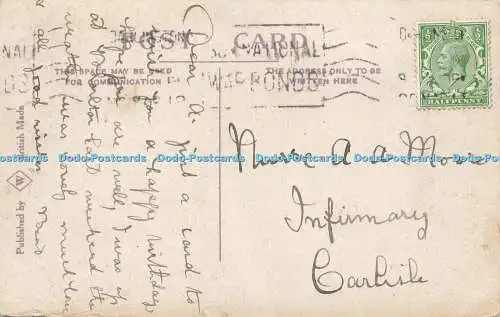 POST CARD
THIS SPACE MAY BE USED
FOR COMMUNICATION
THE ADDRESS ONLY TO BE
WRITTEN HERE
NATIONAL
WAR BONDS
HALFPENNY
Dear A. Just a card to
wish you a happy birthday.
Hope you are well, I was up
at last weekend the
weather was
all good wishes
Published by
British Made
Nurse A A Moss
Infirmary
Carlisle
Dodo-Postcards Dodo-Postcards Dodo-Postcards Dodo-Postcards Dodo-Postcards Dodo-Postcards